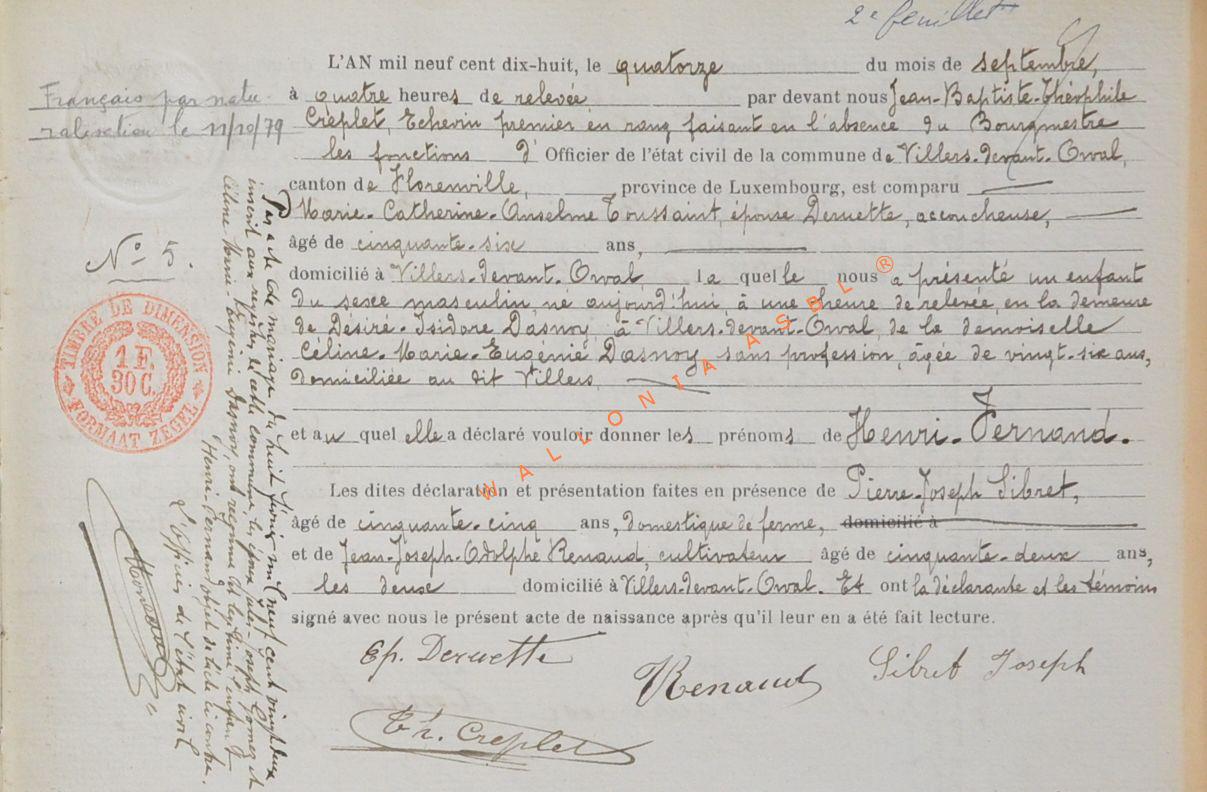 2e feuillet
L'AN mil neuf cent dix-huit, le quatorze du mois de septembre,
à quatre heures de relevée par devant nous Jean-Baptiste-Théophile
Creplet, Echevin premier en rang faisant en l'absence du Bourgmestre
les fonctions d' Officier de l'état civil de la commune de Villers-devant-Orval,
canton de Florenville, province de Luxembourg, est comparu
Marie-Catherine-Anselme Toussaint, épouse Deruette, accoucheuse,
âgé de cinquante-six ans,
domicilié à Villers-devant-Orval, la quelle nous a présenté un enfant
du sexe masculin, né aujourd'hui, à une heure de relevée, en la demeure
de Désiré-Isidore Dasnoy, à Villers-devant-Orval, de la demoiselle
Céline-Marie-Eugénie Dasnoy, sans profession, âgée de vingt-six ans,
domiciliée au dit Villers,
et au quel elle a déclaré vouloir donner les prénoms de Henri-Fernand.
Les dites déclaration et présentation faites en présence de Pierre-Joseph Sibret,
âgé de cinquante-cinq ans, domestique de ferme, domicilié à
et de Jean-Joseph-Adolphe Renaud, cultivateur âgé de cinquante-deux ans,
les deux domicilié à Villers-devant-Orval. Et ont la déclarante et les témoins
signé avec nous le présent acte de naissance après qu'il leur en a été fait lecture.
Ep. Deruette
Renaud
Sibret Joseph
Th. Creplet
Français par natu-
ralisation le 11/10/79
No 5.
TIMBRE DE DIMENSION
1 F.
30 C.
FORMAAT ZEGEL
Par acte de mariage du huit février mil neuf cent vingt deux
inscrit aux registres de cette commune, les époux Jules-Joseph et
Céline Marie-Eugénie Dasnoy, ont reconnu et légitimé l'enfant
Henri Fernand objet de l'acte ci contre.
L'Officier de l'état civil
WALLONIA ASBL ®